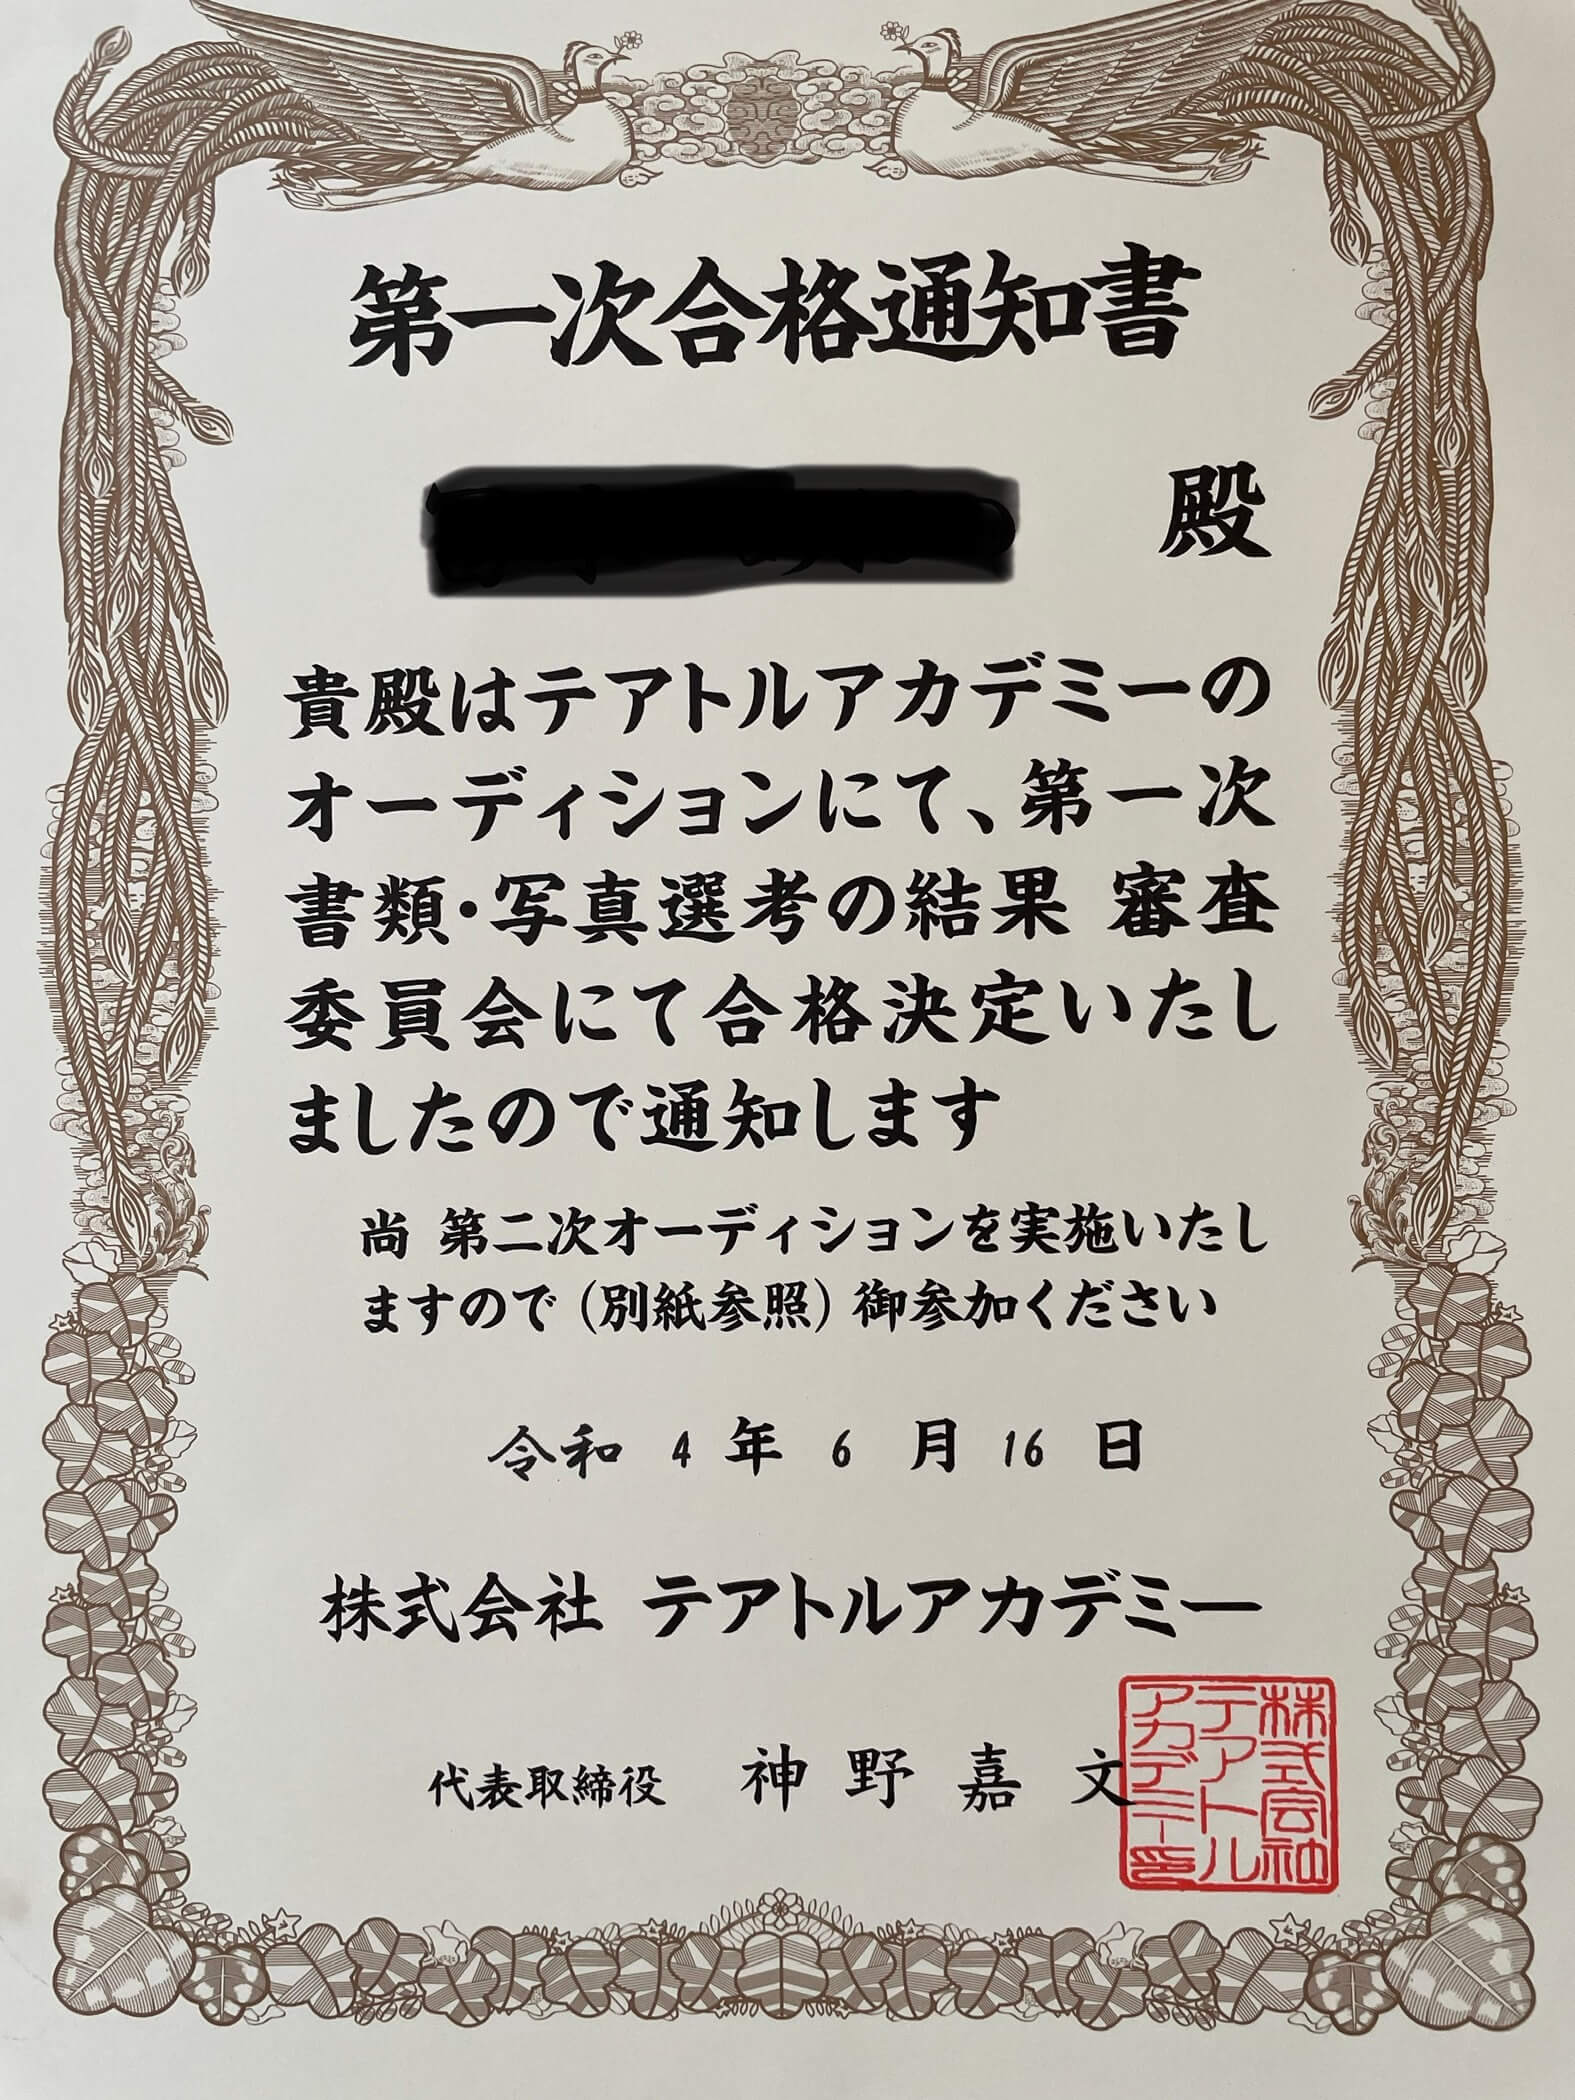 第一次合格通知書
殿
貴殿はテアトルアカデミーの
オーディションにて、第一次
書類・写真選考の結果 審査
委員会にて合格決定いたし
ましたので通知します
尚 第二次オーディションを実施いたし
ますので(別紙参照)御参加ください
令和 4 年 6 月 16 日
株式会社 テアトルアカデミー
代表取締役 神野嘉文
株式会社
テアトル
アカデミー印